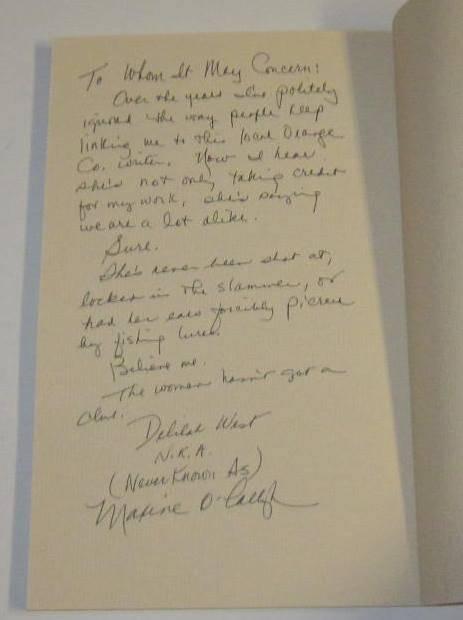 To Whom It May Concern:
Over the years I've politely
ignored the way people keep
linking me to this local Orange
Co. writer. Now I hear
she's not only taking credit
for my work, she's saying
we are a lot alike.
Sure.
She's never been shot at,
locked in the slammer, or
had her ears forcibly pierced
by fishing lures.
Believe me.
The woman hasn't got a
clue.
Delilah West
N.K.A.
(Never Known As)
Maxine O'Callaghan